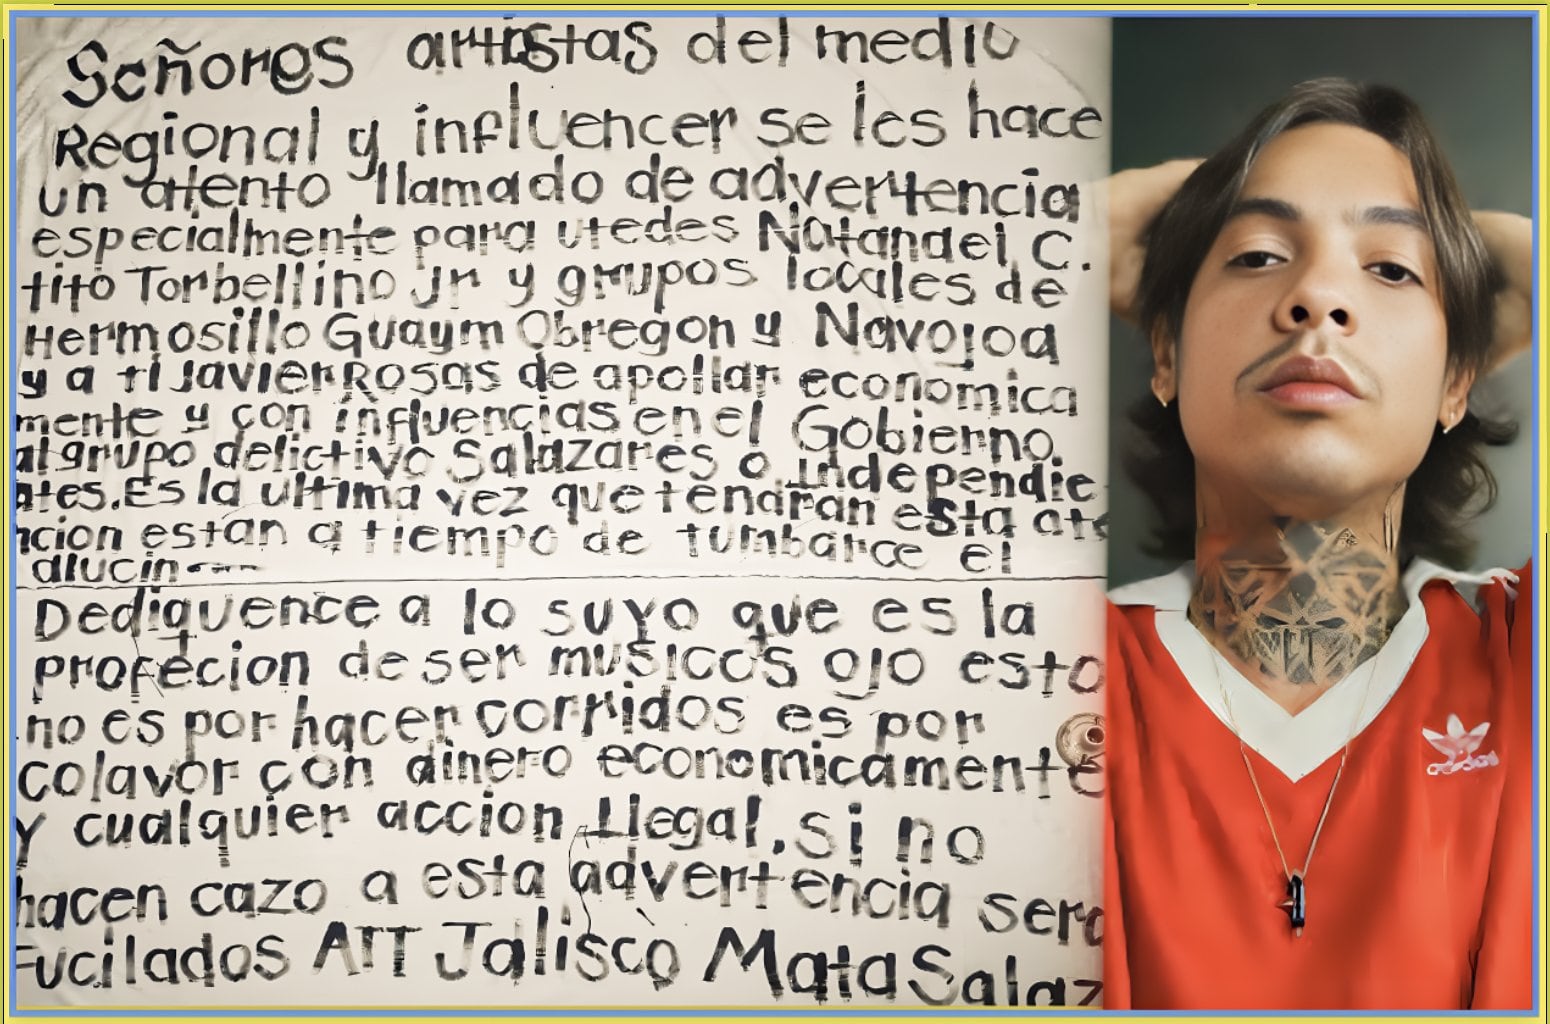 Señores artistas del medio
Regional y influencer se les hace
un atento llamado de advertencia
especialmente para utedes Natandel C.
tito Torbellino Jr y grupos locales de
Hermosillo Guaym Obregon y Navojoa
y a ti Javier Rosas de apollar economica
mente y con influencias en el Gobierno.
al grupo delictivo Salazares o independie
ntes. Es la ultima vez que tendran esta ate
ncion estan a tiempo de tumbarce el
alucin----
Dediquence a lo suyo que es la
profecion de ser musicos ojo esto
no es por hacer corridos es por
colavor con dinero economicamente
y cualquier accion Ilegal, si no
hacen cazo a esta advertencia sera
Fucilados ATT Jalisco Mata Salaz